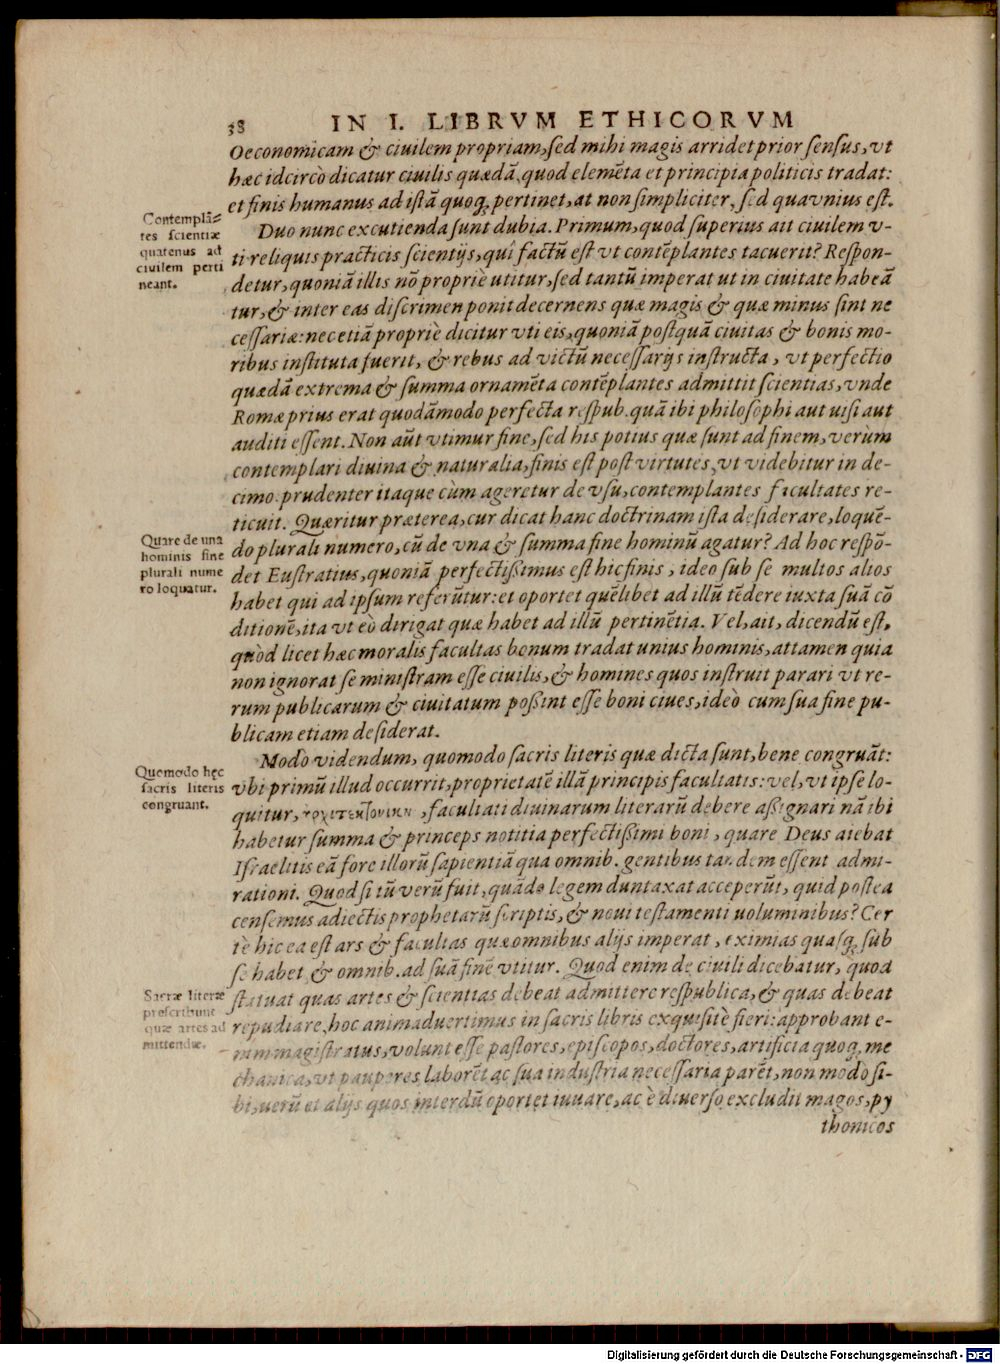 38 IN I. LIBRVM ETHICORVM
Oeconomicam & ciuilem propriam, sed mihi magis arridet prior sensus, vt
hæc idcircò dicatur ciuilis quædā, quod elemēta et principia politicis tradat:
et finis humanus ad istā quoq; pertinet, at non simpliciter, sed qua vnius est.
Duo nunc excutienda sunt dubia. Primum, quod superius ait ciuilem v-
ti reliquis practicis scientijs, quî factū est vt contēplantes tacuerit? Respon-
detur, quoniā illis nō propriè utitur, sed tantū imperat ut in ciuitate habeā
tur, & inter eas discrimen ponit decernens quæ magis & quæ minus sint ne
cessariæ: nec etiā propriè dicitur vti eis, quoniā postquā ciuitas & bonis mo-
ribus instituta fuerit, & rebus ad victū necessarijs instructa, vt perfectio
quædā extrema & summa ornamēta contēplantes admittit scientias, vnde
Romæ prius erat quodāmodo perfecta respub. quā ibi philosophi aut uisi aut
auditi essent. Non aūt vtimur fine, sed his potius quæ sunt ad finem, verùm
contemplari diuina & naturalia, finis est post virtutes, vt videbitur in de-
cimo. prudenter itaque cùm ageretur de vsu, contemplantes facultates re-
ticuit. Quæritur præterea, cur dicat hanc doctrinam ista desiderare, loquē-
do plurali numero, cū de vna & summa fine hominū agatur? Ad hoc respō-
det Eustratius, quoniā perfectißimus est hic finis, ideo sub se multos alios
habet qui ad ipsum referūtur: et oportet quēlibet ad illū tēdere iuxta suā cō
ditionē, ita vt eò dirigat quæ habet ad illū pertinētia. Vel, ait, dicendū est,
quòd licet hæc moralis facultas bonum tradat unius hominis, attamen quia
non ignorat se ministram esse ciuilis, & homines quos instruit parari vt re-
rum publicarum & ciuitatum poßint esse boni ciues, ideò cum sua fine pu-
blicam etiam desiderat.
Modò videndum, quomodo sacris literis quæ dicta sunt, bene congruāt:
vbi primū illud occurrit, proprietatē illā principis facultatis: vel, vt ipse lo-
quitur, ἀρχιτεκτονικὴν, facultati diuinarum literarū debere aßignari nā ibi
habetur summa & princeps notitia perfectißimi boni, quare Deus aiebat
Israelitis eā fore illorū sapientiā qua omnib. gentibus tandem essent admi-
rationi. Quod si tū verū fuit, quādo legem duntaxat acceperūt, quid postea
censemus adiectis prophetarū scriptis, & noui testamenti uoluminibus? Cer
tè hic ea est ars & facultas quæ omnibus alijs imperat, eximias quasq; sub
se habet & omnib. ad suā finē vtitur. Quod enim de ciuili dicebatur, quod
statuat quas artes & scientias debeat admittere respublica, & quas debeat
repudiare, hoc animaduertimus in sacris libris exquisitè fieri: approbant e-
nim magistratus, volunt esse pastores, episcopos, doctores, artificia quoq; me
chanica, vt pauperes laborēt ac sua industria necessaria parēt, non modò si-
bi, uerū et alijs quos interdū oportet iuuare, ac è diuerso excludit magos, py
thonicos
Contemplā=
tes scientiæ
quatenus ad
ciuilem perti
neant.
Quare de una
hominis fine
plurali nume
ro loquatur.
Quomodo hęc
sacris literis
congruant.
Sacræ literæ
præscribunt
quæ artes ad
mittendæ.
Digitalisierung gefördert durch die Deutsche Forschungsgemeinschaft - DFG